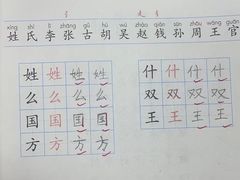 xìng shì lǐ zhāng gǔ hú wú zhào qián sūn zhōu wáng guān
姓 氏 李 张 古 胡 吴 赵 钱 孙 周 王 官
姓 姓 姓 姓 什 什 什 什
么 么 么 么 双 双 双 双
国 国 国 国 王 王 王 王
方 方 方 方